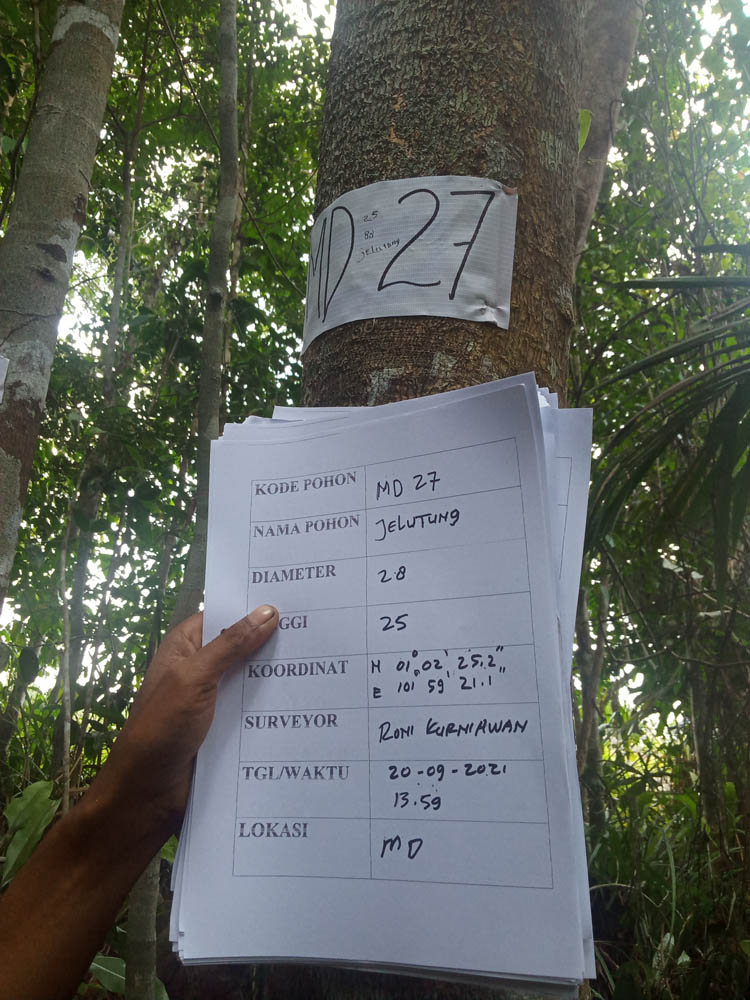 MD 27
25
JELUTUNG
KODE POHON MD 27
NAMA POHON JELUTUNG
DIAMETER 28
GGI 25
KOORDINAT N 01° 02' 25.2"
E 101° 59' 21.1"
SURVEYOR RONI KURNIAWAN
TGL/WAKTU 20-09-2021
13.59
LOKASI MD